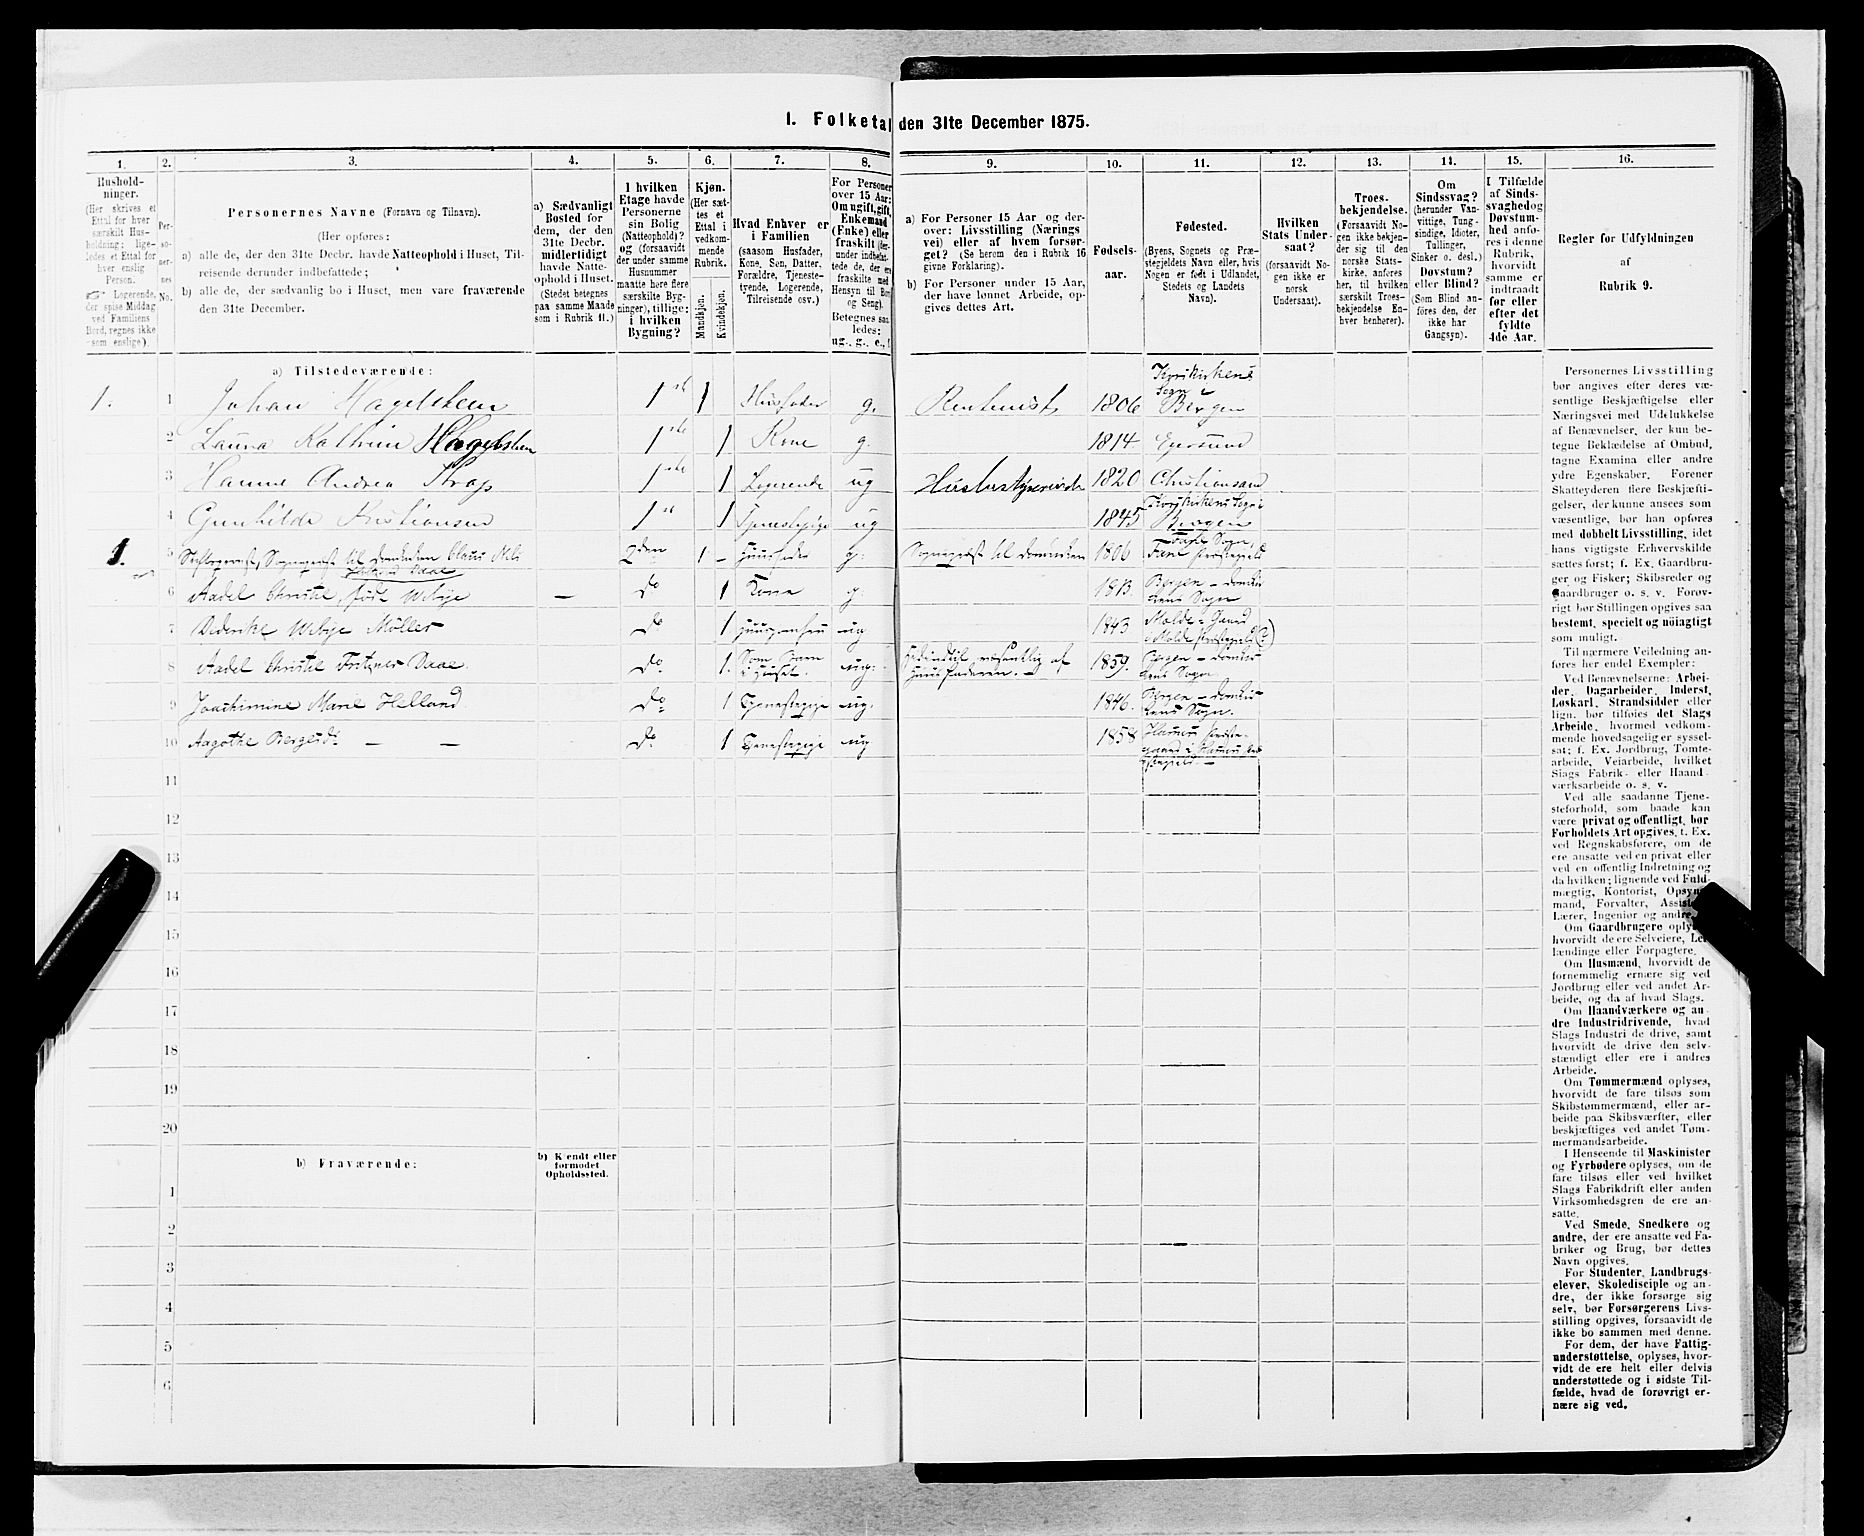 I. Folketal den 31te December 1875.
1. 2. 3. 4. 5. 6. 7. 8. 9. 10. 11. 12. 13. 14. 15. 16.
Hushold-
ninger.
(Her skrives et
Ettal for hver
særskilt Hus-
holdning; lige-
ledes et Ettal for
hver enslig
Person.
Logerende,
der spise Middag
ved Familiens
Bord, regnes ikke
som enslige).
Per-
so-
ner-
nes
No.
Personernes Navne (Fornavn og Tilnavn).
(Her opføres:
a) alle de, der den 31te Decbr. havde Natteophold i Huset, Til-
reisende derunder indbefattede;
b) alle de, der sædvanlig bo i Huset, men vare fraværende
den 31te December.
a) Sædvanligt
Bosted for
dem, der den
31te Decbr.
midlertidigt
havde Natte-
ophold i Huset.
(Stedet betegnes
paa samme Maade
som i Rubrik 11.)
I hvilken
Etage havde
Personerne
sin Bolig
(Natteophold)?
og (forsaavidt
der under samme
Husnummer
maatte høre flere
særskilte Byg-
ninger), tillige:
i hvilken
Bygning?
Kjøn.
(Her sæt-
tes et
Ettal i
vedkom-
mende
Rubrik.
Mandkjøn.
Kvindekjøn.
Hvad Enhver er
i Familien
(saasom Husfader,
Kone, Søn, Datter,
Forældre, Tjeneste-
tyende, Logerende,
Tilreisende osv.)
For Personer
over 15 Aar:
Om ugift, gift,
Enkemand
(Enke) eller
fraskilt (der-
under indbefat-
tede de, der ere
fraskilte med
Hensyn til Bord
og Seng).
Betegnes saa-
ledes:
ug., g., e., f.
a) For Personer 15 Aar og der-
over: Livsstilling (Nærings
vei) eller af hvem forsør-
get? (Se herom den i Rubrik 16
givne Forklaring).
b) For Personer under 15 Aar,
der have lønnet Arbeide, op-
gives dettes Art.
Fødsels-
aar.
Fødested.
(Byens, Sognets og Præ-
stegjeldets Navn eller, hvis
Nogen er født i Udlandet,
Stedets og Landets
Navn).
Hvilken
Stats Under-
saat?
(forsaavidt No-
gen ikke er
norsk
Undersaat).
Troes-
bekjendelse.
(Forsaavidt No-
gen ikke bekjen-
der sig til den
norske Stats-
kirke, anføres
her, til hvilken
særskilt Troes-
bekjendelse En-
hver henhører).
Om
Sindssvag?
(herunder Van-
vittige, Tung-
sindige, Idioter,
Tullinger,
Sinker o. desl.)
Døvstum?
eller Blind?
(Som Blind an-
føres den, der
ikke har
Gangsyn).
I Tilfælde
af Sinds-
svaghed og
Døvstum-
hed anfø-
res i denne
Rubrik,
hvorvidt
samme er
indtraadt
før eller
efter det
fyldte
4de Aar.
Regler for Udfyldningen
af
Rubrik 9.
a) Tilstedeværende:
1. 1 Johan Hagelsteen 1ste 1 Husfader g. Rentenist 1806 Korskirkens Sogn i Bergen
2 Laura Kathrine Hagelsteen 1ste 1 Kone g. 1814 Egersund
3 Hanne Andrea 1ste 1 Logerende ug 1820 Christiansand
4 Gunhilde Kristiansen 1st 1 Tjenestepige ug 1845 Korskirkens Sogn i Bergen
1. 5 Sognepræst til Domkirken Claus Nils Daae 2den 1 - Huusfader g. Sognepræst til Domkirken 1806
6 Aadel Christie, født Wibye - do 1 Kone g. 1813. Bergen - Domkirkens Sogn
7 Diderike Wibye Møller do 1 ug 1843
8 Aadel Christie Fritzner Daae do. 1. Som Barn i Huset. ug. 1859. Bergen - Domkirkens Sogn
9 Joachimine Marie Helland do 1 Tjenestepige ug. 1846. Bergen - Domkirkens Sogn.
10 Aagothe - - do. 1 Tjenestepige ug 1858
11
12
13
14
15
16
17
18
19
20
b) Fraværende:
b) Kjendt eller
formodet
Opholdssted.
1
2
3
4
5
6
Personernes Livsstilling
bør angives efter deres væ-
sentlige Beskjæftigelse eller
Næringsvei med Udelukkelse
af Benævnelser, der kun be-
tegne Beklædelse af Ombud,
tagne Examina eller andre
ydre Egenskaber. Forener
Skatteyderen flere Beskjæfti-
gelser, der kunne ansees som
væsentlige, bør han opføres
med dobbelt Livsstilling, idet
hans vigtigste Erhvervskilde
sættes først; f. Ex. Gaardbru-
ger og Fisker; Skibsreder og
Gaardbruger o. s. v. Forøv-
rigt bør Stillingen opgives saa
bestemt, specielt og nøiagtigt
som muligt.
Til nærmere Veiledning an-
føres her endel Exempler:
Ved Benævnelserne: Arbei-
der, Dagarbeider, Inderst,
Løskarl, Strandsidder eller
lign. bør tilføies det Slags
Arbeide, hvormed vedkom-
mende hovedsagelig er syssel-
sat; f. Ex. Jordbrug, Tomte-
arbeide, Veiarbeide, hvilket
Slags Fabrik- eller Haand-
værksarbeide o. s. v.
Ved alle saadanne Tjene-
steforhold, som baade kan
være privat og offentligt, bør
Forholdets Art opgives, t. Ex.
ved Regnskabsførere, om de
ere ansatte ved en privat eller
ved en offentlig Indretning og
da hvilken; lignende ved Fuld-
mægtig, Kontorist, Opsyns-
mand, Forvalter, Assistent,
Lærer, Ingeniør og andre.
Om Gaardbrugere oplyses,
hvorvidt de ere Selveiere, Lei-
lændinge eller Forpagtere.
Om Husmænd, hvorvidt de
fornemmelig ernære sig ved
Jordbrug eller ved andet Ar-
beide, og da af hvad Slags.
Om Haandværkere og an-
dre Industridrivende, hvad
Slags Industri de drive, samt
hvorvidt de drive den selv-
stændigt eller ere i andres
Arbeide.
Om Tømmermænd oplyses,
hvorvidt de fare tilsøs som
Skibstømmermænd, eller ar-
beide paa Skibsværfter, eller
beskjæftiges ved andet Tøm-
mermandsarbeide.
I Henseende til Maskinister
og Fyrbødere oplyses, om de
fare tilsøs eller ved hvilket
Slags Fabrikdrift eller anden
Virksomhedsgren de ere an-
satte.
Ved Smede, Snedkere og
andre, der ere ansatte ved Fa-
briker og Brug, bør dettes
Navn opgives.
For Studenter, Landbrugs-
elever, Skoledisciple og an-
dre, der ikke forsørge sig
selv, bør Forsørgerens Livs-
stilling opgives, forsaavidt de
ikke bo sammen med denne.
For dem, der have Fattig-
understøttelse, oplyses, hvor-
vidt de ere helt eller delvis
understøttede og i sidste Til-
fælde, hvad de forøvrigt er-
nære sig ved.